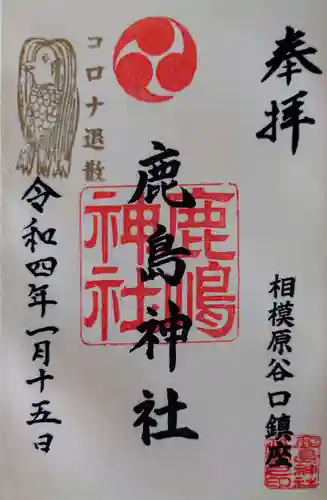 奉拝
相模原谷口鎮座
鹿島神社
鹿嶋神社
コロナ退散
令和四年一月十五日